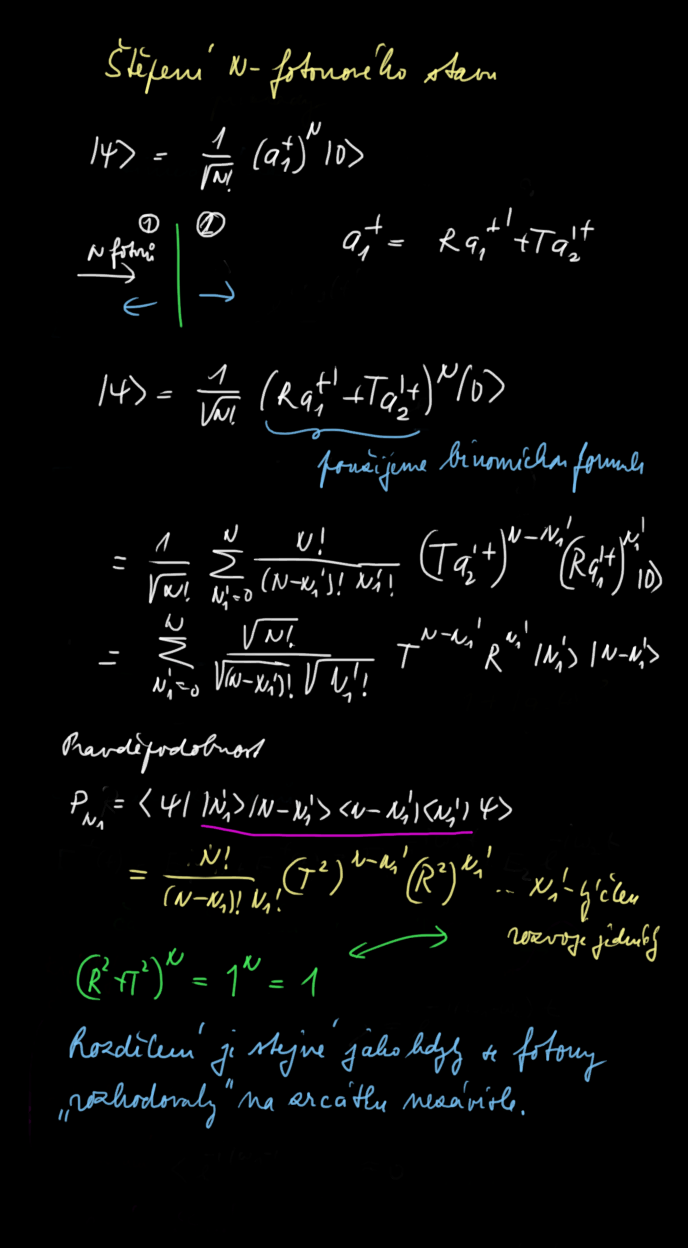 Štěpení N-fotonového stavu
|ψ> = 1/√N! (a₁⁺)ᴺ |0>
① ②
N fotonů
a₁⁺ = R a₁⁺' + T a₂'⁺
|ψ> = 1/√N! (R a₁⁺' + T a₂'⁺)ᴺ |0>
použijeme binomickou formuli
= 1/√N! ∑_{N₁'=0}^{N} N!/((N-N₁')! N₁'!) (T a₂'⁺)^{N-N₁'} (R a₁'⁺)^{N₁'} |0>
= ∑_{N₁'=0}^{N} √N!/(√(N-N₁')! √N₁'!) T^{N-N₁'} R^{N₁'} |N₁'> |N-N₁'>
Pravděpodobnost
P_{N₁} = <ψ| |N₁'>|N-N₁'><N-N₁'|<N₁'| ψ>
= N!/((N-N₁)! N₁!) (T²)^{N-N₁'} (R²)^{N₁'} ... N₁'-tý člen
rozvoje jedničky
(R²+T²)ᴺ = 1ᴺ = 1
Rozdělení je stejné jako kdyby se fotony
„rozhodovaly" na zrcátku nezávisle.